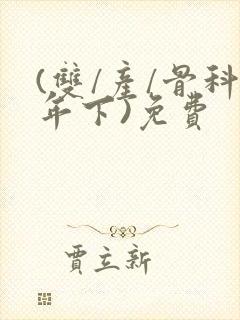 (雙/產/骨科
年下)免費
賈立新